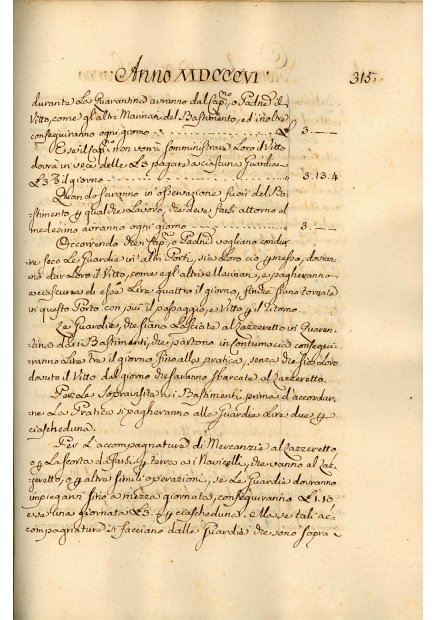 Anno MDCCCVI
315.
durante La Quarantina avranno dal Cap.no, o Padne il
Vitto, come gl'altri Marinari del Bastimento, ed inoltre
conseguiranno ogni giorno £ 3.—.—
E se il Cap.no non vorrà somministrare Loro il Vitto
dovrà in vece delle £3 pagare a ciascuna Guardia
il giorno 3.13.4
Quando saranno in osservazione fuori del Ba-
stimento p qualche Lavoro, che deve farsi attorno al
medesimo avranno ogni giorno 3.—.—
Occorrendo che i Cap.ni o Padni vogliano condur-
re seco Le Guardie in altri Porti, sia Loro ciò pmesso, dovran-
no dar Loro il Vitto, come agl'altri Marinari, e pagheranno
a ciascuna di esse Lire quattro il giorno, finche siano tornate
in questo Porto con più il passaggio, e Vitto p il ritorno.
Le Guardie, che siano Lasciate al Lazzeretto in Quaren-
tina da i Bastimenti, che partono in Contumacia consegui-
ranno Lire tre il giorno fino alla pratica, senza che sia Loro
dovuto il Vitto dal giorno che saranno sbarcate al Lazzeretto.
Per La Sopravista a i Bastimenti prima d'accordar-
ne La Pratica si pagheranno alle Guardie Lire due p
ciascheduna.
Per L'accompagnatura di Mercanzie al Lazzeretto
o p La scorta da farsi p terra a i Navicelli, che vanno al Laz-
zeretto, o p altre simili operazioni, se Le Guardie dovranno
impiegarsi fino a mezza giornata, conseguiranno £1.10
e se una giornata £3.— p ciascheduna. Ma se tali ac-
compagnature si facciano dalle Guardie che sono sopra-